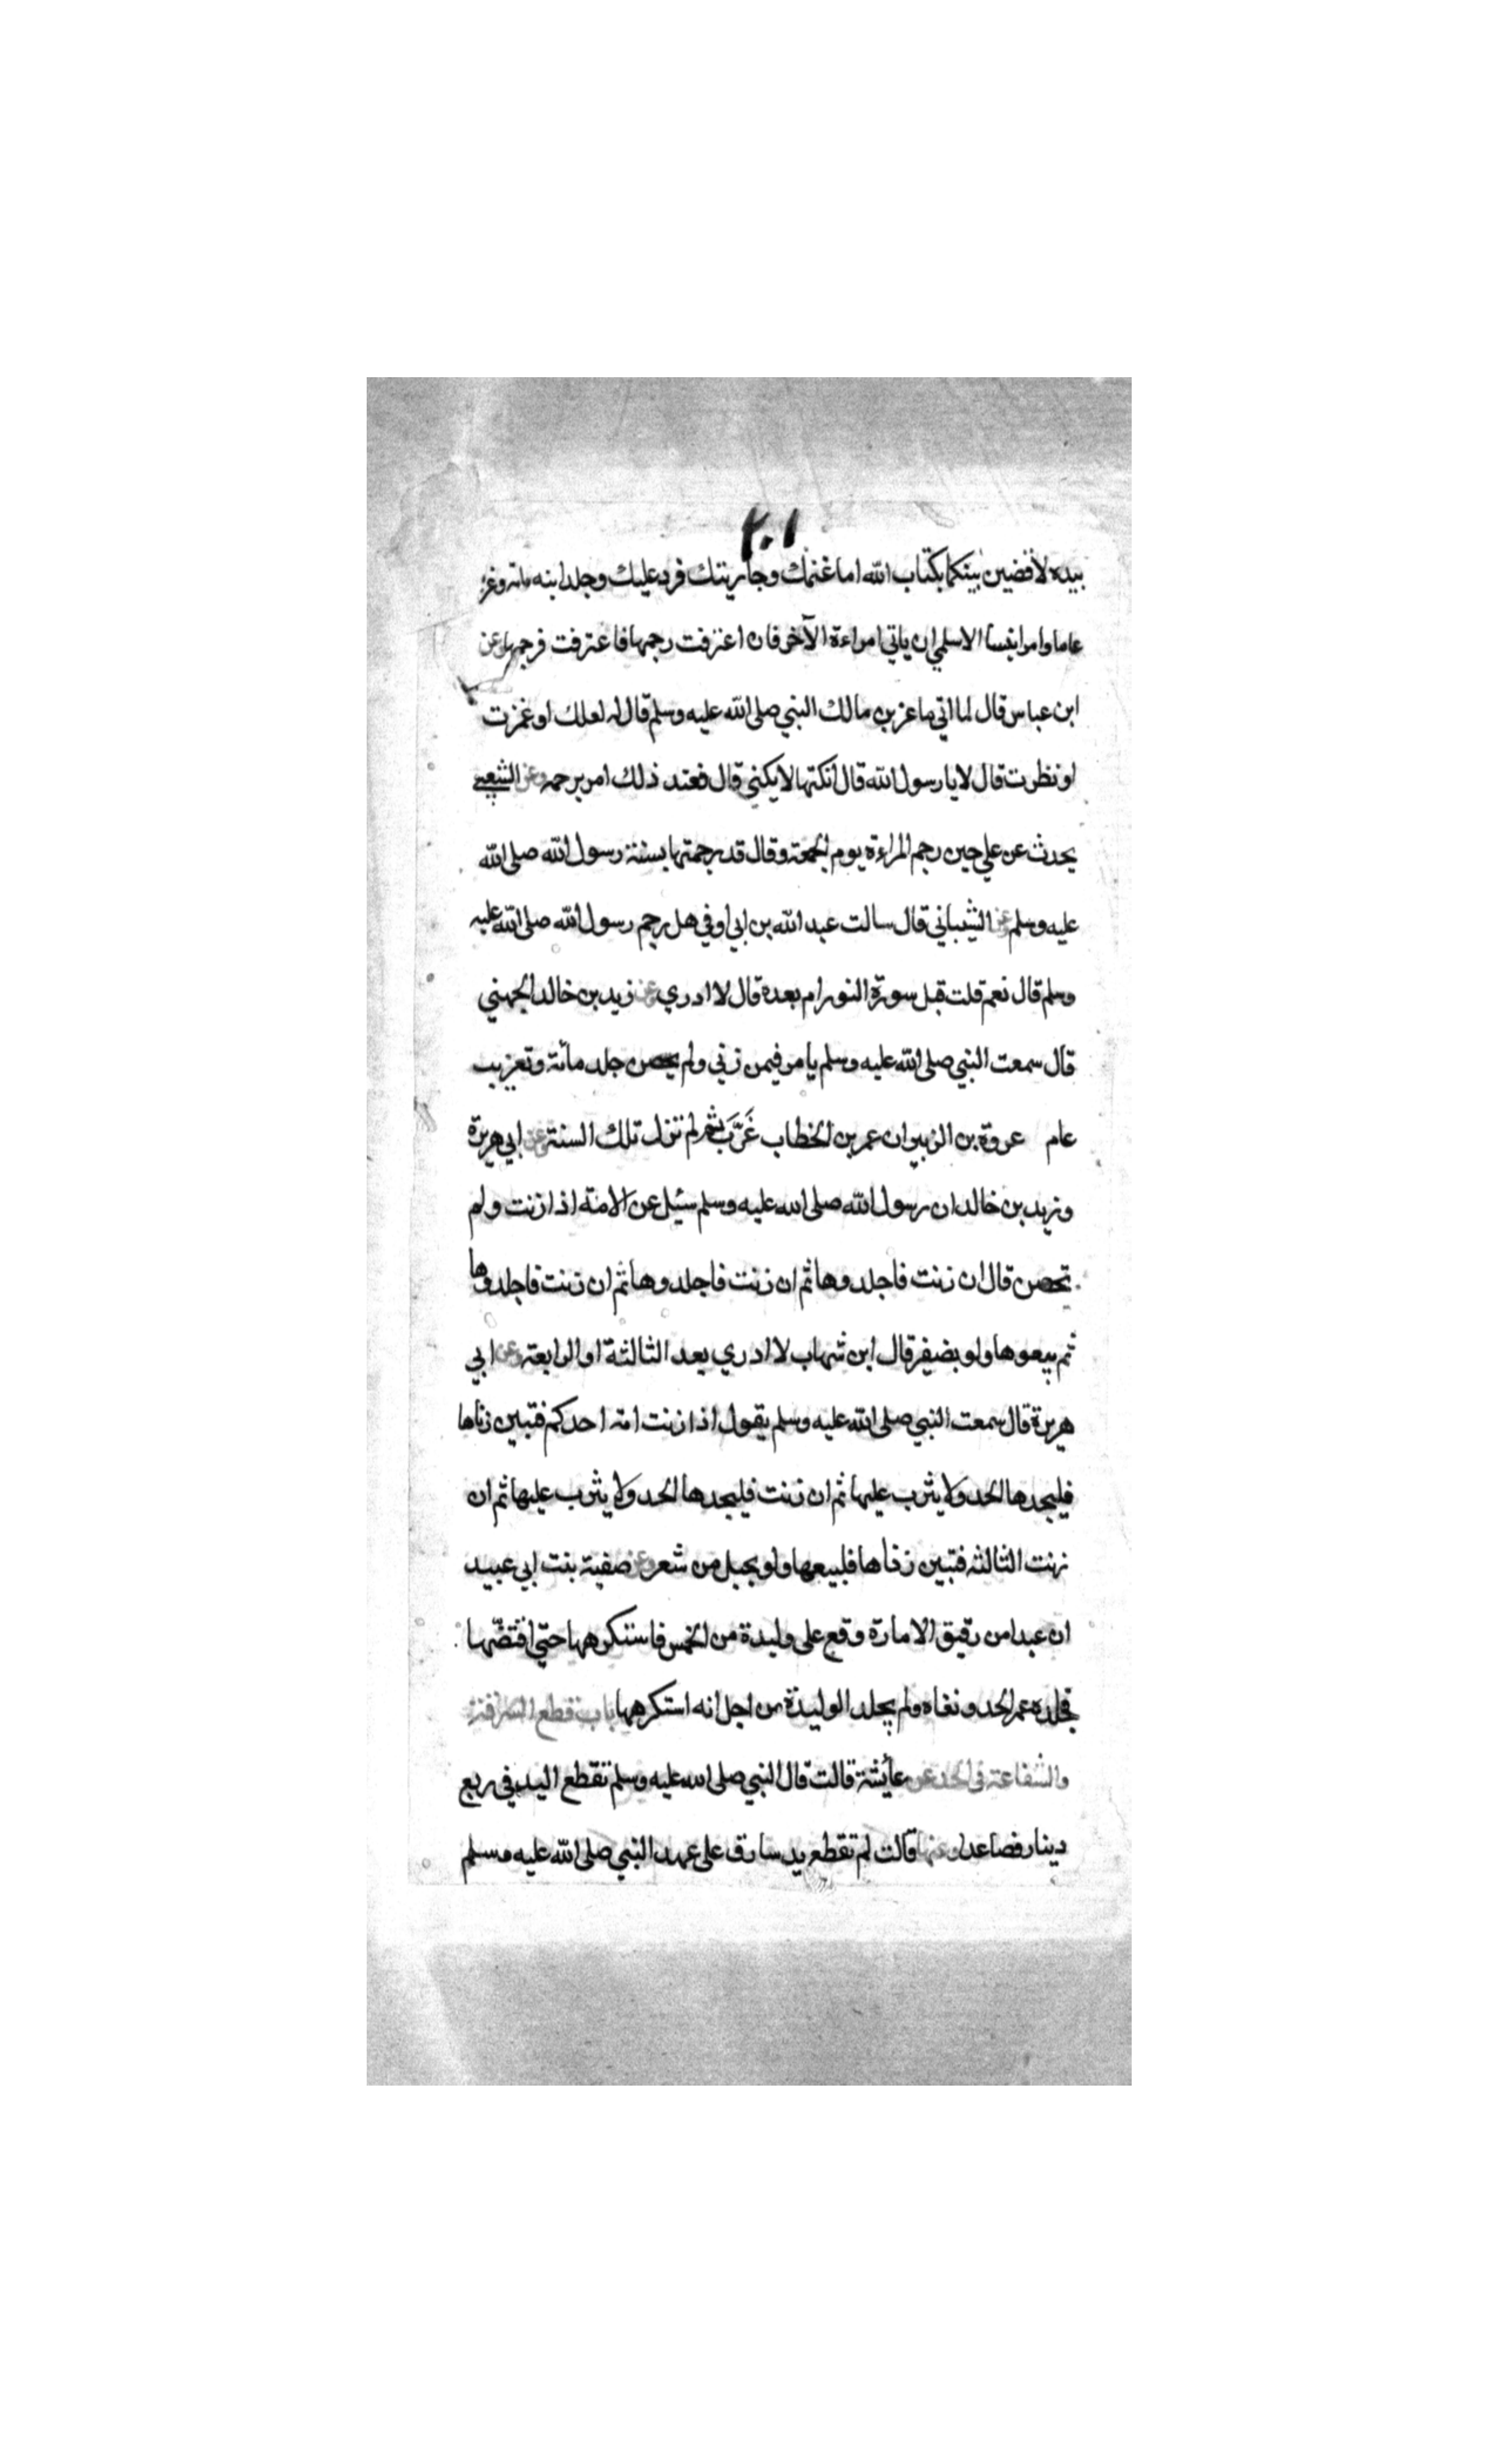 ٢٠١
بيده لاقضين بينكما بكتاب الله اما غنمك وجاريتك فرد عليك وجلد ابنه مائة وغربه
عاما وامر انيسا الاسلمي ان ياتي امراءة الآخر فان اعترفت رجمها فاعترفت فرجمها وعن
ابن عباس قال لما اتي ماعز بن مالك النبي صلى الله عليه وسلم قال له لعلك او غمزت
او نظرت قال لا يا رسول الله قال انكتها لا يكني قال فعند ذلك امر برجمه وعن الشعبي
يحدث عن علي حين رجم المراءة يوم الجمعة وقال قد رجمتها بسنة رسول الله صلى الله
عليه وسلم وعن الشيباني قال سالت عبد الله بن ابي اوفي هل رجم رسول الله صلى الله عليه
وسلم قال نعم قلت قبل سورة النور ام بعده قال لا ادري وعن زيد بن خالد الجهني
قال سمعت النبي صلى الله عليه وسلم يامر فيمن زني ولم يحصن جلد مائة وتغريب
عام عروة بن الزبير ان عمر بن الخطاب غَرَّبَ ثم لم تزل تلك السنة وعن ابي هريرة
وزيد بن خالد ان رسول الله صلى الله عليه وسلم سئل عن الامة اذا زنت ولم
تحصن قال ان زنت فاجلدوها ثم ان زنت فاجلدوها ثم ان زنت فاجلدوها
ثم بيعوها ولو بضفير قال ابن شهاب لا ادري بعد الثالثة او الرابعة وعن ابي
هريرة قال سمعت النبي صلى الله عليه وسلم يقول اذا زنت امة احدكم فتبين زناها
فليجدها الحد ولا يثرب عليها ثم ان زنت فليجدها الحد ولا يثرب عليها ثم ان
زنت الثالثه فتبين زناها فليبعها ولو بحبل من شعر وعن صفية بنت ابي عبيد
ان عبدا من رقيق الامارة وقع على وليدة من الخمس فاستكرهها حتي افتضّها
فجلده عمر الحد ونفاه ولم يجلد الوليدة من اجل انه استكرهها باب قطع السرقة
والشفاعة في الحد عن عائشة قالت قال النبي صلى الله عليه وسلم تقطع اليد في ربع
دينار فصاعدا وعنها قالت لم تقطع يد سارق على عهد النبي صلى الله عليه وسلم